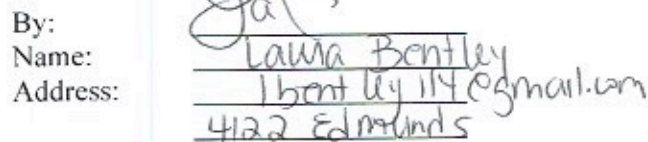 By:
Name: Laura Bentley
Address: lbentley114@gmail.com
4122 Edmunds